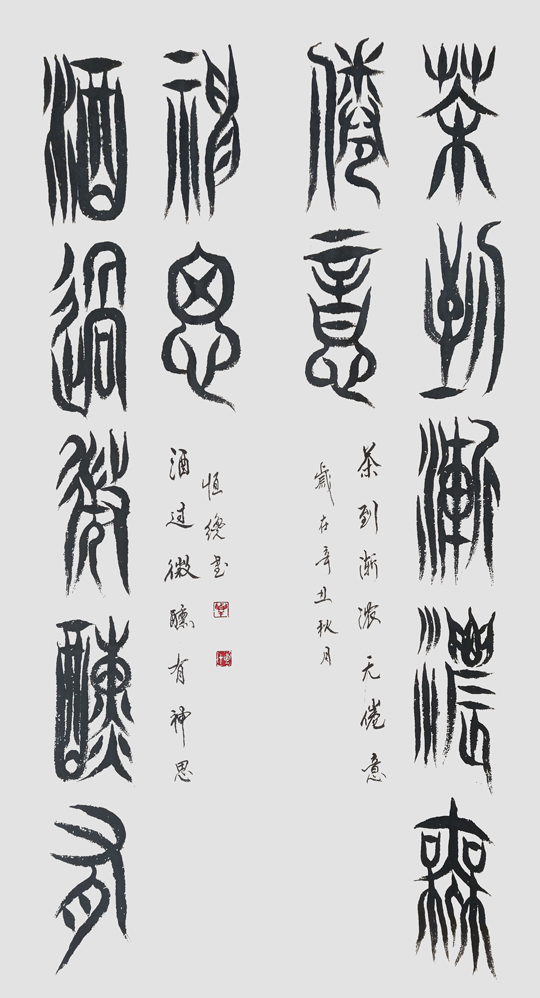 茶到漸濃無
倦意
茶到渐浓无倦意
歲在辛丑秋月
酒過微醺有
神思
酒过微醺有神思
恒书